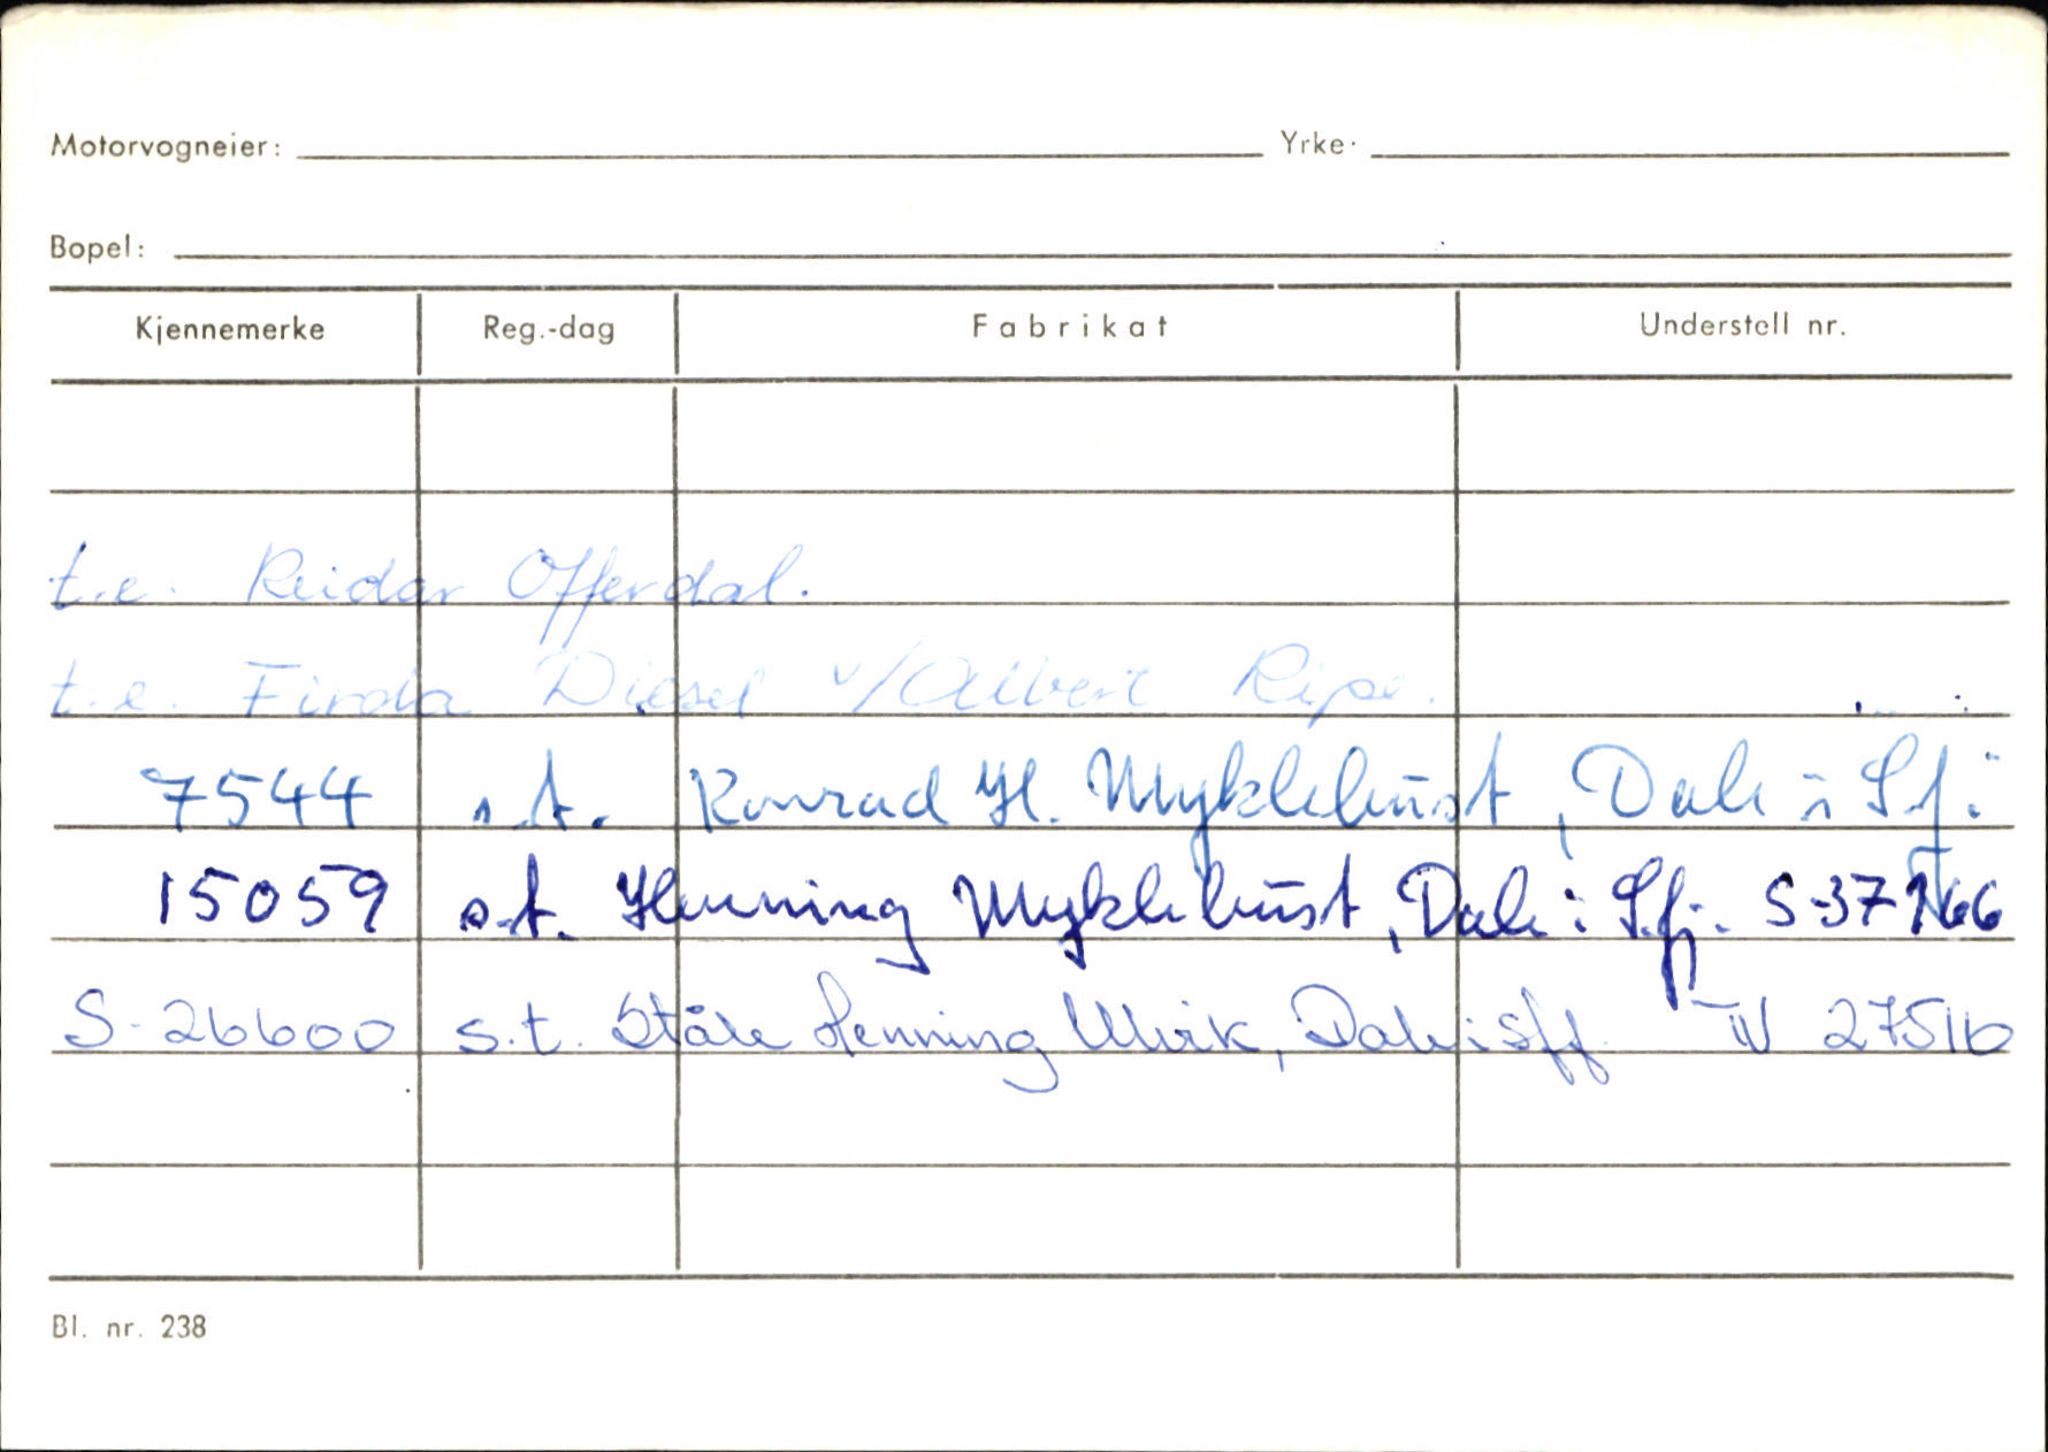 Motorvogneier: Yrke.
Bopel:
Kjennemerke Reg.-dag Fabrikat Understell nr.
t.e. Reidar Offerdal.
t.e. Firda Diesel v/Albert Ripe.
7544 s.t. Konrad H. Myklebust, Dale i Sfj.
15059 s.t. Henning Myklebust, Dale i Sfj. S-37166
S-26600 s.t. Ståle Henning Ulvik, Dale i Sfj. TV 27516
Bl. nr. 238